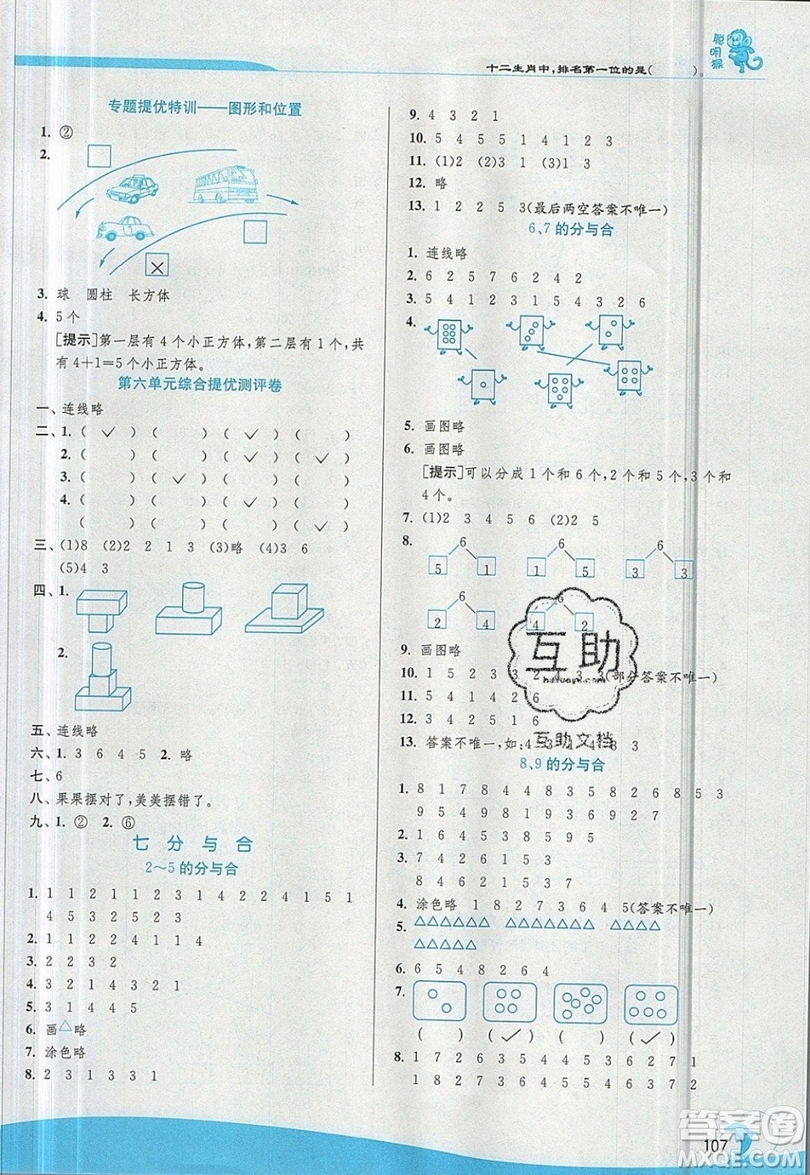 十二生肖中,排名第一位的是(　　)。
聪明猴
专题提优特训——图形和位置
1. ②
2.
×
3. 球 圆柱 长方体
4. 5个
[提示]第一层有4个小正方体,第二层有1个,共
有4+1=5个小正方体。
第六单元综合提优测评卷
一、连线略
二、1. ( ✓ ) ( ) ( ✓ ) ( )
2. ( ) ( ) ( ✓ ) ( ✓ )
3. ( ) ( ✓ ) ( ) ( )
4. ( ✓ ) ( ) ( ) ( )
( ) ( ) ( ✓ ) ( )
三、(1)8 (2)2 2 1 3 (3)略 (4)3 6
(5)4 3
四、1.
2.
五、连线略
六、1. 3 6 4 5 2. 略
七、6
八、果果摆对了,美美摆错了。
九、1. ② 2. ⑥
七 分 与 合
2～5的分与合
1. 1 1 2 1 1 2 3 1 4 2 2 4 1 5 1
4 5 3 2 2 3 5 4 1
2. 1 1 2 2 4 1 1 4
3. 2 2 3 2
4. 3 2 1 4 3 2 1
5. 3 1 4 4 5
6. 画△略
7. 涂色略
8. 2 3 1 3 3 1
9. 4 3 2 1
10. 5 4 5 5 1 4 1 2 3
11. (1)2 (2)1 1 (3)1
12. 略
13. 1 2 2 5 3(最后两空答案不唯一)
6、7的分与合
1. 连线略
2. 6 2 5 7 6 2 4 2
3. 5 4 1 2 3 1 5 4 1 3 6
4.
5. 画图略
6. 画图略
[提示]可以分成1个和6个,2个和5个,3个和
4个。
7. (1)2 3 4 5 6 (2)2 5
8.
6 6 6
5 1 1 5 3 3
6
2 4 4 2
9. 画图略
10. 1 5 2 3 3 2 4 3 3(部分答案不唯一)
11. 5 4 1 4 2 6
12. 3 4 2 5 1 6
13. 答案不唯一,如:4
互助
互助文档
8、9的分与合
1. 8 1 7 8 4 4 8 3 5 8 2 6 8 5 3
9 5 4 9 8 1 9 7 2 9 3 6
2. 1 3 4 4 5 3 8 5 9 5
3. 1 7 7 3 5 2 9 5 4
8 4 6 2 1 7 2
4. 涂色略 1 8 2 7 3 6 4 5(答案不唯一)
5. △△△△△△ △△△△△△△ △△△△
△△△△△
6. 6 5 4 8 2 6 4
7.
( ) ( ✓ ) ( ) ( ✓ )
8. 1 7 2 6 3 5 4 4 5 3 6 2 7 1
8 1 7 2 6 3 5 4 4 5 3 6 2 7 1
107
答案圈